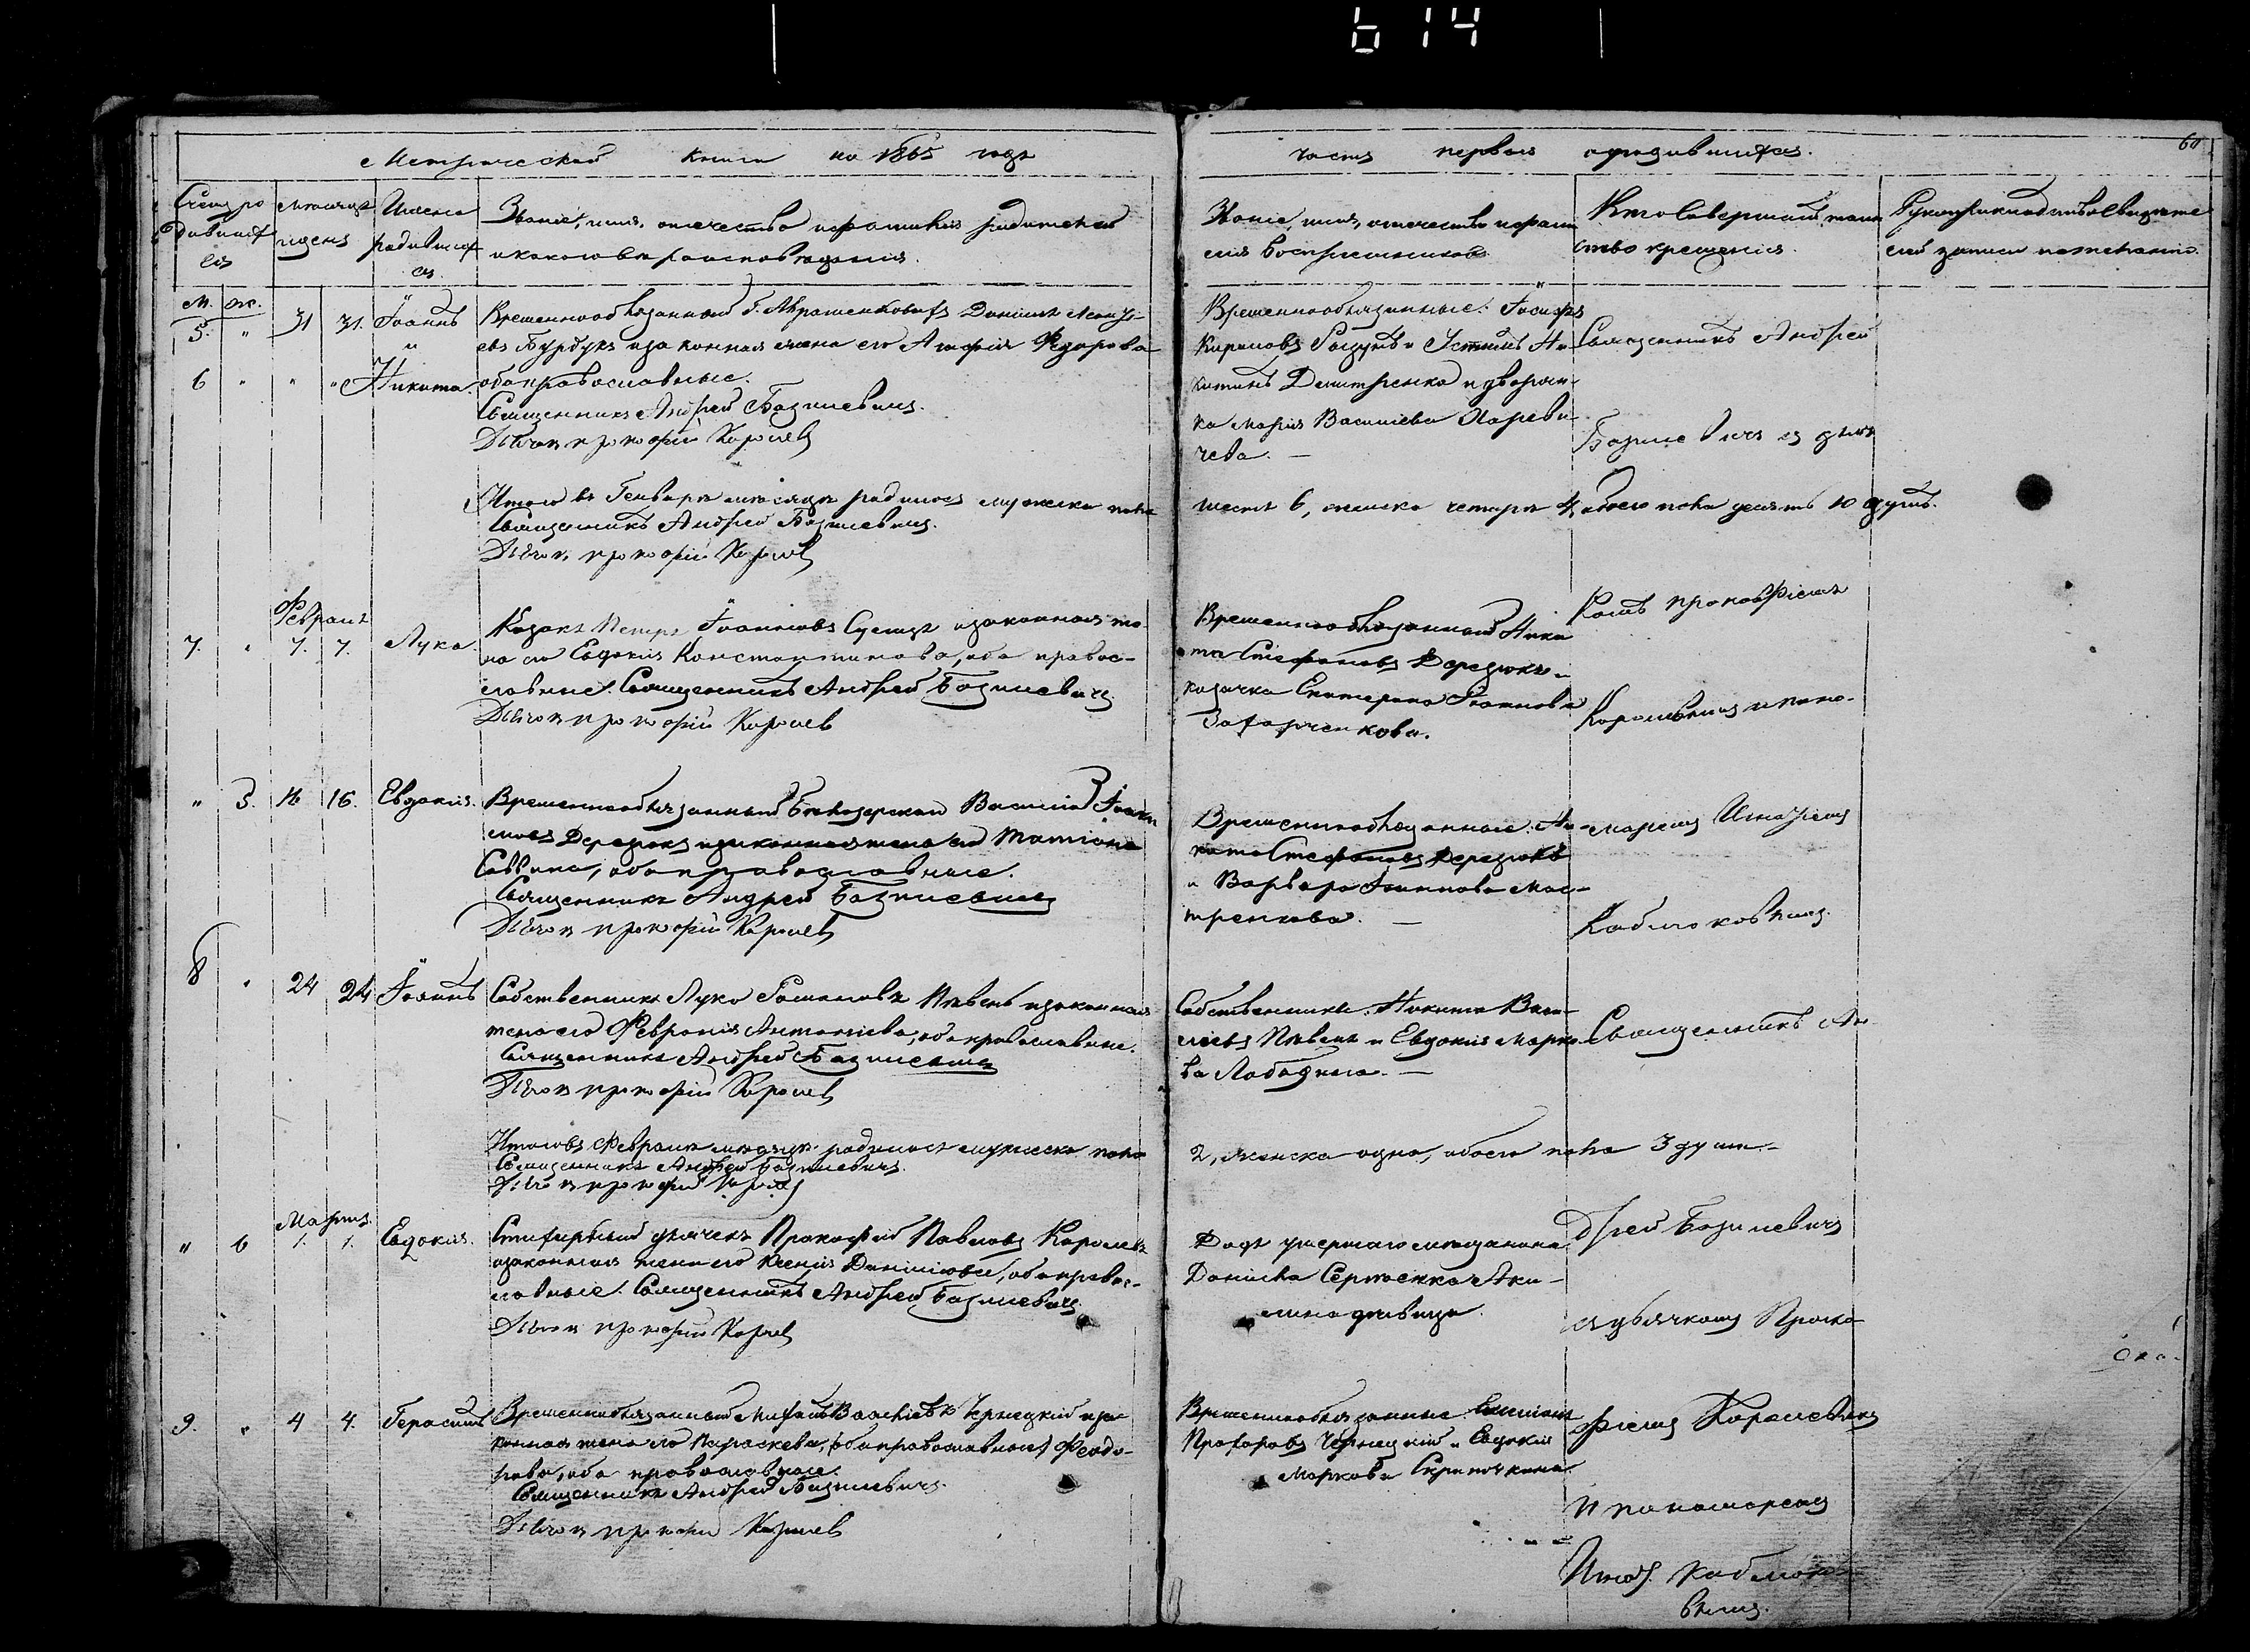 614
Метрической книги на 1865 годъ
часть первая о родившихся.
60
Счетъ ро
дивших
ся
Мѣсяцъ
и день
Имена
родивших
ся.
Званіе, имя, отечество и фамилія родителей
и какого вѣроисповѣданія.
Званіе, имя, отечество и фами
лія воспріемниковъ
Кто совершалъ таин
ство крещенія.
Рукоприкладство свидѣте
лей записи по желанію.
М. Ж.
5. " 31 31. Іоаннъ
и
6 " " " Никита.
Временнообязанный Даніилъ
Бурдукъ и законная жена его Агафія Федорова
оба православные.
Священникъ Андрей Базилевичъ.
Дьячокъ Прокофій Королев
Временнообязанные: Іосифъ
Кириловъ и Устинъ Ни
китинъ Дмитренко и дворян
ка Марія Васильева
чева. —
Священникъ Андрей
Базилевичъ съ дьяч
Итого въ Генварѣ мѣсяцѣ родилось мужеска пола
шесть 6, женска четыре 4, обоего пола десять 10 душъ.
Священникъ Андрей Базилевичъ.
Дьячок Прокофій Королев
Февраль
7. " 7. 7. Лука
Козакъ Петръ Іоанновъ и законная же
на его Евдокія Константинова, оба правос-
лавные. Священникъ Андрей Базилевичъ.
Дьячок Прокофій Королев
Временнообязанный Ники
та Стефановъ Дередюкъ и
козачка Екатерина Іоаннова
Захарченкова.
комъ Прокофіемъ
Королевымъ и поно-
" 5. 16 16. Евдокія.
Временнообязанный Василій
Дередюкъ и законная жена его Татіана
Саввина, оба православные.
Священникъ Андрей Базилевичъ
Дьячок Прокофій Королев
Временнообязанные: Ни
кита Стефановъ Дередюкъ
и Варвара Іоаннова
тренкова. —
маремъ
Каблюковымъ.
8 " 24 24 Іоаннъ
Собственникъ Лука Романовъ Пивень и законная
жена его Февронія Антоніева, оба православные.
Священникъ Андрей Базилевичъ
Дьячок Прокофій Королев
Собственники: Никита Васи
ліевъ Пивень и Евдокія Марко
ва Лободина. —
Священникъ Ан
Итого въ Февралѣ мѣсяцѣ родилось мужеска пола
2, женска одна, обоего пола 3 души. —
Священникъ Андрей Базилевичъ.
Дьячок Прокофій Королев
Марта.
" 6 1. 1. Евдокія.
Стихарный дьячекъ Прокофій Павловъ Королевъ
и законная жена его Ксенія Даниилова, оба правос-
лавные. Священникъ Андрей Базилевичъ
Дьячок Прокофій Королев
Дочь умершаго мещанина
Даніила Сергіенка Аки-
лина дѣвица.
дрей Базилевичъ
съ дьячкомъ Проко
9. " 4 4. Герасимъ
Временнообязанный Михаилъ Васильевъ Чернецкій и за
конная жена его Параскева, (оба православные) Феодо-
рова, оба православные.
Священникъ Андрей Базилевичъ.
Дьячок Прокофій Королев
Временнообязанные:
Прохоровъ Чернецкій и Евдокія
Маркова
фіемъ Королевымъ
и пономаремъ
Каблюко
вымъ.